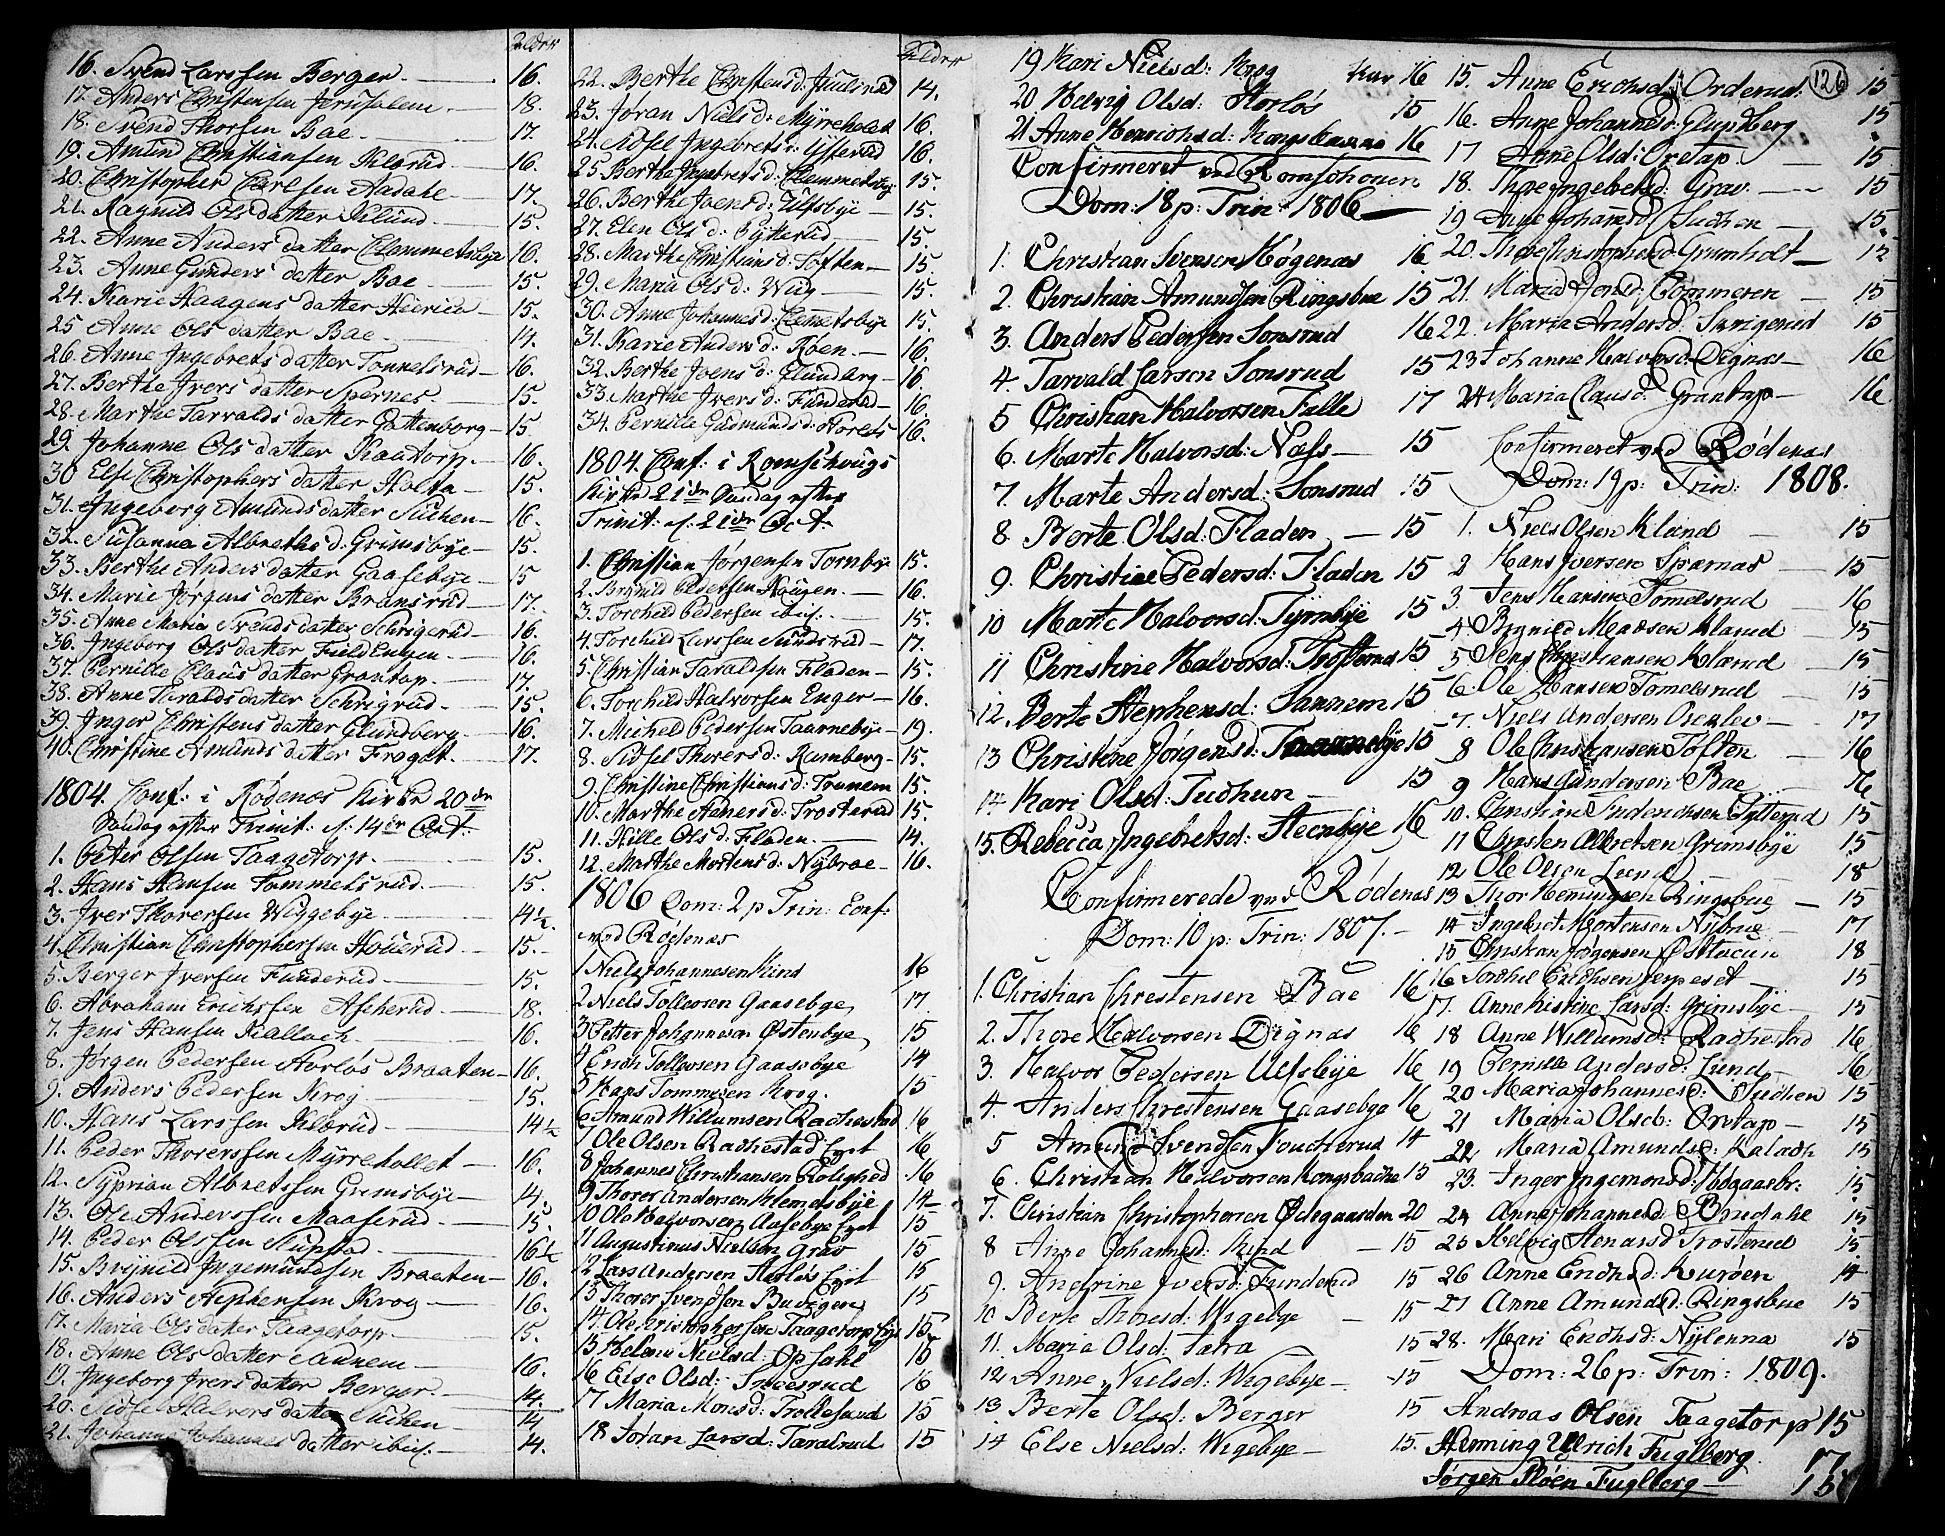 Alder
16. Svend Larssen Berger 16.
17. Anders Christensen Jerusalem 18.
18. Svend Thorsen Bae 17.
19. Amund Christiansen Kilsrud 16.
20. Christopher Carlsen Aadahl 17.
21. Ragnild Olsdatter Kilund 15.
22. Anne Andersdatter Clemmetsbye 16.
23. Anne Gundersdatter Bae 15.
24. Karie Haagensdatter 15.
25 Anne Olsdatter Bae 14.
26. Anne Ingebretsdatter Tommelsrud 16.
27. Berthe Iversdatter Spernes 15.
28. Marthe Tarvaldsdatter Gottenborg 15
29. Johanne Olsdatter Kaatorp 16.
30 Else Christophersdatter Holen 15.
31. Ingeborg Amundsdatter Suchen 16.
32. Susanna Albrethsd: Grimsbye 15.
33. Berthe Andersdatter Gaasebye 15
34. Marie Jørgensdatter Bransrud 17.
35. Anne Maria Svendsdatter Schrigerud 16.
36. Ingeborg Olsdatter Fuld Engen 16.
37. Pernille Clausdatter Grantop 17.
38. Anne Taraldsdatter Schrigrud 15.
39. Inger Christensdatter Glundberg 16.
40. Christine Amundsdatter Froget 17.
1804. Conf: i Rødenes Kirke 20de
Søndag efter Trinit: d: 14de Oct:
1. Peter Olsen Taagetorp 15.
2. Hans Hansen Tommelsrud 15.
3. Iver Thoresen Wiggebye 14½.
4. Christian Christophersen Houerud 15.
5. Berger Iversen Funderud 15.
6. Abraham Erichsen Ascherud 18.
7. Jens Hansen Kallach 16.
8. Jørgen Pedersen Horløs Braaten 16.
9. Anders Pedersen Krog 15.
10. Hans Larssen Kilsrud 14½
11. Peder Thoressen Myrehollet 16.
12. Syprian Albretssen Grimsbye 14.
13. Ole Anderssen Maaserud 15.
14. Peder Olssen Slupstad 16½
15. Brynild Ingemundsen Braaten 16.
16. Anders Stephensen Krog 16.
17. Maria Olsdatter Taagetorp 15.
18. Anne Olsdatter Sannem 16.
19. Ingeborg Iversdatter Berger 14.
20. Sidsel Halvorsdatter Suchen 14
21. Johanne Johannesdatter ibid. 14.
Alder
22. Berthe Christensd: Juulsrud 14.
23. Joran Nielsd: Myrehollet 16.
24. Sidsel Ingebretsd: Ysterud 16.
25 Berthe Ingebretsd: Clemmetsbye 15.
26. Berthe Joensd: Ulfsbye 15.
27. Elen Olsd: Rytterud 15.
28. Marthe Christiansd: Toften 15.
29. Maria Olsd: Wug 15.
30. Anne Johannesd: Clemetsbye 15.
31. Karie Andersd: Roen 16.
32. Berthe Joensd: Glundberg 16.
33. Marthe Iversd: Funderud 16.
34. Pernille Gudmundsd: Horløs 16.
1804. Conf: i Romschougs
Kirke 21de Søndag efter
Trinit: d. 21de Oct.
1. Christian Jørgensen Tornbye 15.
2. Brynild Pedersen Haugen 16.
3. Torchild Pedersen ibid. 15.
4. Torchild Larssen Sundsrud 17.
5. Christian Taraldsen Fladen 15.
6. Torchild Halvorsen Enger 16.
7. Michel Pedersen Taarnebye 19.
8. Sidsel Thoresd: Ramberg 15.
9. Christine Christiansd: Trunem 15.
10. Marthe Adnersd: Trosterud 15.
11. Hille Olsd: Fladen 14.
12. Marthe Mortensd: Nybroe 16.
1806 Dom: 2 p Trin: Conf:
ved Rødenæs
1 Niels Johannesen Kind 16
2 Niels Tollevsen Gaasebye 17.
3 Petter Johannesen Østenbye 15
4 Erich Tollevsen Gaasebye 14
5 Hans Tommesen Krog 15
6 Amund Willumsen Radhestad 16
7 Ole Olsen Radhestad Eyet 16
8 Johannes Christiansen Rolighed 16
9 Thorer Andersen Klemetsbye 14
10 Ole Halvorsen Aasebye Eyet 15
11 Augustinus Nielsen Grav 15
12 Lars Andersen Horløs Eyet 15
13 Thorer Svendsen Buvigen 15
14. Ole Kristophersen Taagetorp Eye 15
15 Helene Nielsd: Opsahl 15
16 Else Olsd: 16
17 Maria Monsd: Trollesund 15
18 Joran Larsd: Taralrud 15
19 Kari Nielsd: Krog 16
20 Helvig Olsd: Horløs 15
21 Anne Henrichsd: Kongsbachna 16
Confirmeret ved Romschouen
Dom: 18 p: Trin: 1806
1. Christian Svensen Høgenæs 16
2. Christian Amundsen Ringsbue 15
3. Anders Pedersen Sonsrud 16
4. Tarvald Larsen Sonsrud 15
5 Christian Halvorsen Falle 17
6. Marte Halvorsd: Næss 15
7. Marte Andersd: Sonsrud 15
8 Berte Olsd: Fladen 15
9. Christine Pedersd: Fladen 15
10 Marte Halvorsd: Tyrnbye 15
11 Christine Halvorsd: Trosterud 15
12. Berte Stephensd: Sannem 15
13 Christine Jørgensd: Taarnebye 15
14. Kari Olsd: Tudhun 15
15. Rebecca Ingebretsd: Steenbye 16
Confirmerede ved Rødenæs
Dom: 10 p: Trin: 1807.
1. Christian Chrestensen Bae 16
2. Thore Halvorsen Dignæs 16
3. Halvor Pedersen Ulfsbye 16
4. Anders Chrestensen Gaasebye 16
5 Amund Svendsen Fouchterud 14
6. Christian Halvorsen Kongsbachna 15
7. Christian Christophersen Ødegaarden 20
8 Anne Johannesd: Kind 15
9. Andrine Iversd: Funderud 15
10 Berte Thoresd: Wigebye 15
11. Maria Olsd: Tatra 15
12 Anne Nielsd: Wigebye 15
13 Berte Olsd: Berger 15
14 Else Nielsd: Wigebye 15.
126
15. Anne Erichsd: Orderud 15
16. Anne Johannesd: Glundberg 15
17 Anne Olsd: Oretap 15
18. Thore Ingebretsd: Grav 15
19 Anne Johannesd Suchen 15
20. Thore Christophersd Grimholt 15
21. Maria Joensd: Tommeren 15
22. Maria Andersd: Skrigerud 15
23 Johanne Halvorsd: Dignæs 16
24 Maria Clausd: Grantop 16
Confirmeret ved Rødenæs
Dom: 19 p: Trin: 1808.
1. Niels Olsen Klund 15
2 Hans Iversen Spærnæs 15
3. Jens Hansen Tomelsrud 16
4. Brynild Madsen Klarud 15
5 Jens Christiansen Klærud 15
6. Ole Hansen Tomelsrud 15
7. Niels Andersen Oserløv 17
8 Ole Christiansen Toften 16
9 Hans Gundersen Bae 16
10. Christian Friderichsen Rytterud 15
11 Christen Albretsen Grimsbye 15
12 Ole Olsen Lund 18
13 Thor Hemmingsen Ringsbue 15
14 Ingebret Mortensen Nybrue 17
15 Christian Jørgensen Østtucun 18
16 Torchil Erichsen Jerpeset 15
17. Anne Kistine Larsd: Grimsbye 15
18 Anne Willumsd: Radhestad 16
19 Pernille Andersd: Lund 16
20 Maria Johannesd: Suchen 15
21 Maria Olsd: Oretap 15
22 Maria Amundsd: Kalach 15
23. Inger Ingemonsd: Høgaasbr: 15
24 Anne Johannesd: Bredahl 15
25 Helvig Stenarsd Trosterud 15
26 Anne Erichsd: Kurøen 14
27 Anne Amundsd: Ringsbue 15
28. Mari Erichsd: Nylenna 15
Dom: 26 p: Trin: 1809.
Andreas Olsen Taagetorp 15
Henning Ulrich Fuglberg 17
Jørgen Pløen Fuglberg 15